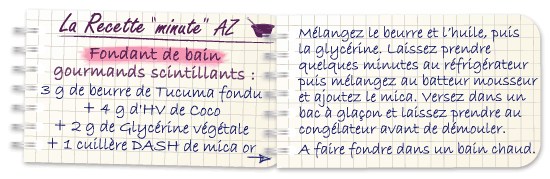 La Recette "minute" AZ
Fondant de bain
gourmands scintillants :
3 g de beurre de Tucuma fondu
+ 4 g d'HV de Coco
+ 2 g de Glycérine végétale
+ 1 cuillère DASH de mica or
Mélangez le beurre et l'huile, puis
la glycérine. Laissez prendre
quelques minutes au réfrigérateur
puis mélangez au batteur mousseur
et ajoutez le mica. Versez dans un
bac à glaçon et laissez prendre au
congélateur avant de démouler.
A faire fondre dans un bain chaud.